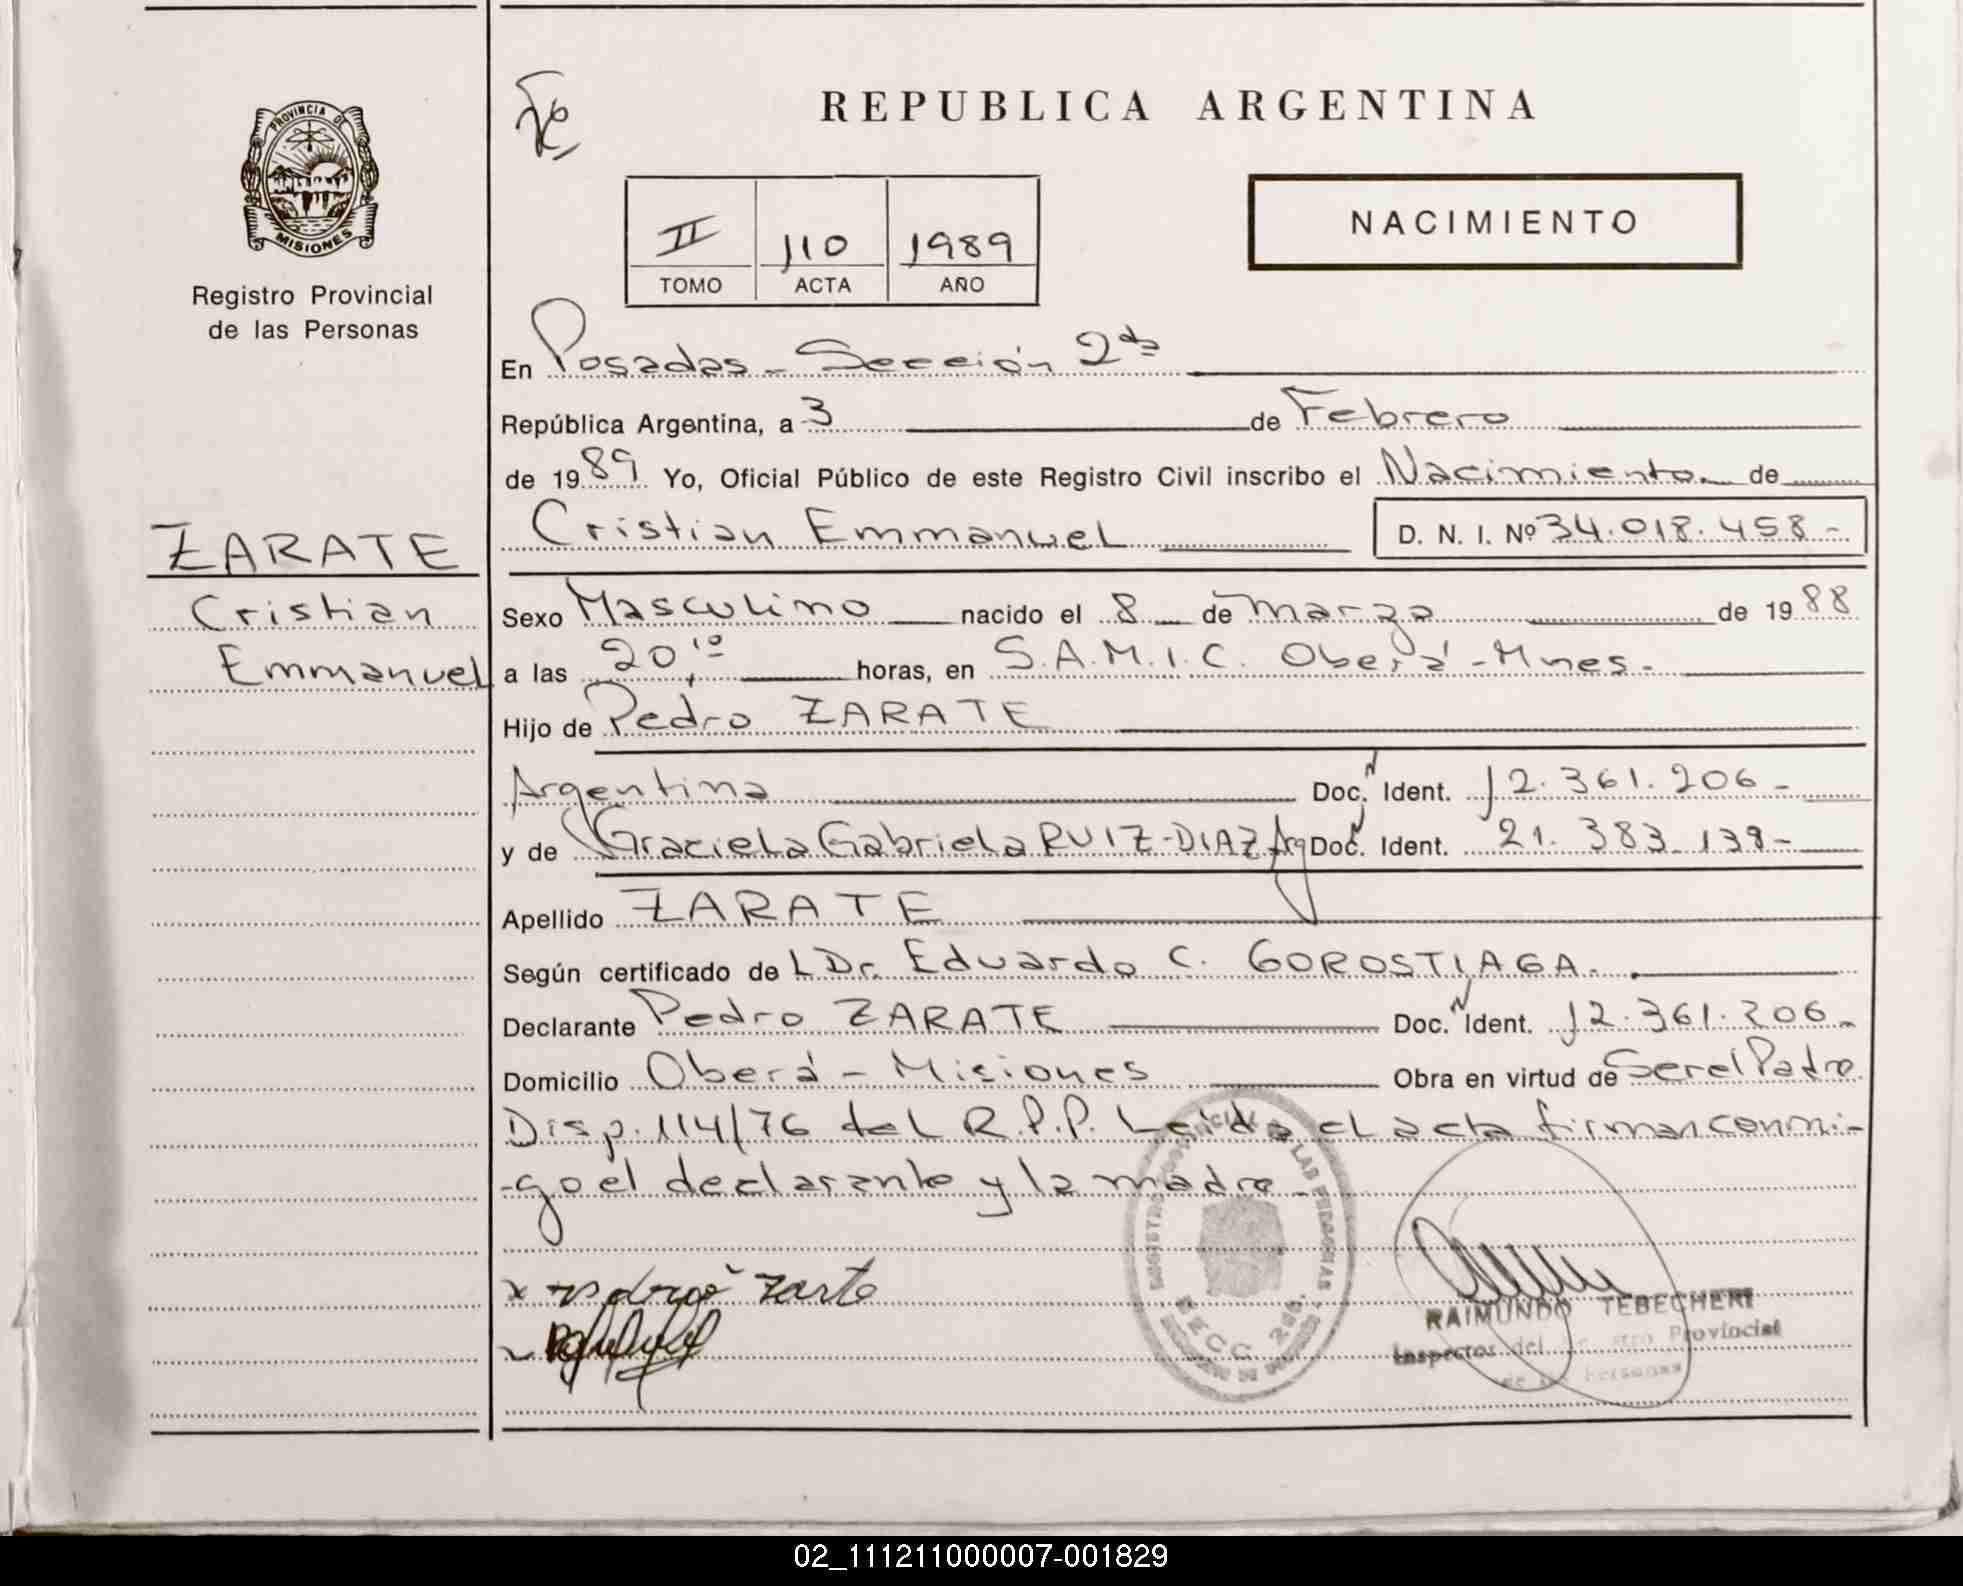 PROVINCIA DE
MISIONES
Registro Provincial
de las Personas
ZARATE
Cristian
Emmanuel
REPUBLICA ARGENTINA
II 110 1989
TOMO ACTA AÑO
NACIMIENTO
En Posadas - Sección 2da
República Argentina, a 3 de Febrero
de 1989 Yo, Oficial Público de este Registro Civil inscribo el Nacimiento de
Cristian Emmanuel D. N. I. Nº 34.018.458-
Sexo Masculino nacido el 8 de marzo de 1988
a las 20,10 horas, en S.A.M.I.C. Oberá - Mnes.
Hijo de Pedro ZARATE
Argentina Doc. N Ident. 12.361.206-
y de Graciela Gabriela RUIZ-DIAZ Arg Doc. Ident. 21.383.139-
Apellido ZARATE
Según certificado de L Dr. Eduardo C. GOROSTIAGA.
Declarante Pedro ZARATE Doc. N Ident. 12.361.206-
Domicilio Oberá - Misiones Obra en virtud de Ser el Padre
Disp. 114/76 del R.P.P. Leída el acta firman conmi-
-go el declarante y la madre.
REGISTRO PROVINCIAL DE LAS PERSONAS
SECC 2da.
RAIMUNDO TEBECHERI
Inspector del Provincial
de Personas
02_111211000007-001829